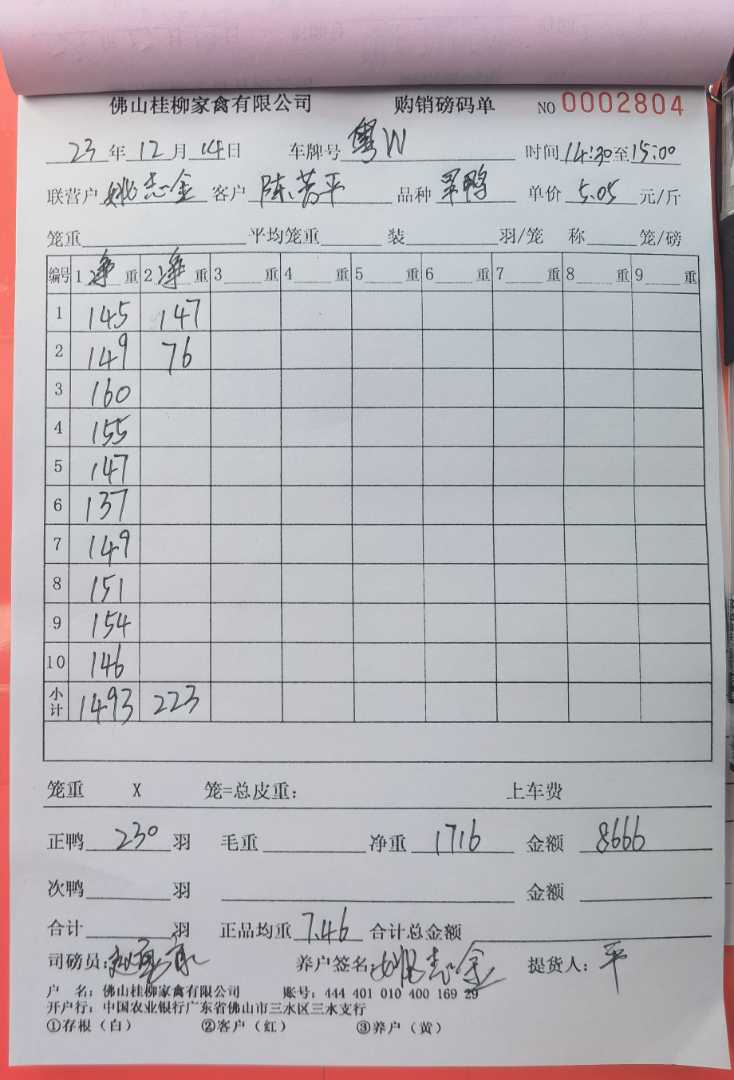 佛山桂柳家禽有限公司 购销磅码单 NO 0002804
23年12月14日 车牌号 粤W 时间14:30至15:00
联营户 姚志金 客户 陈 平 品种 鸭 单价 5.05 元/斤
笼重 平均笼重 装 羽/笼 称 笼/磅
编号 1 净 重 2 净 重 3 重 4 重 5 重 6 重 7 重 8 重 9 重
1 145 147
2 149 76
3 160
4 155
5 147
6 137
7 149
8 151
9 154
10 146
小计 1493 223
笼重 X 笼=总皮重: 上车费
正鸭 230 羽 毛重 净重 1716 金额 8666
次鸭 羽 金额
合计 羽 正品均重 7.46 合计总金额
司磅员: 养户签名: 姚志金 提货人: 平
户 名: 佛山桂柳家禽有限公司 账号: 444 401 010 400 169 29
开户行: 中国农业银行广东省佛山市三水区三水支行
①存根（白） ②客户（红） ③养户（黄）